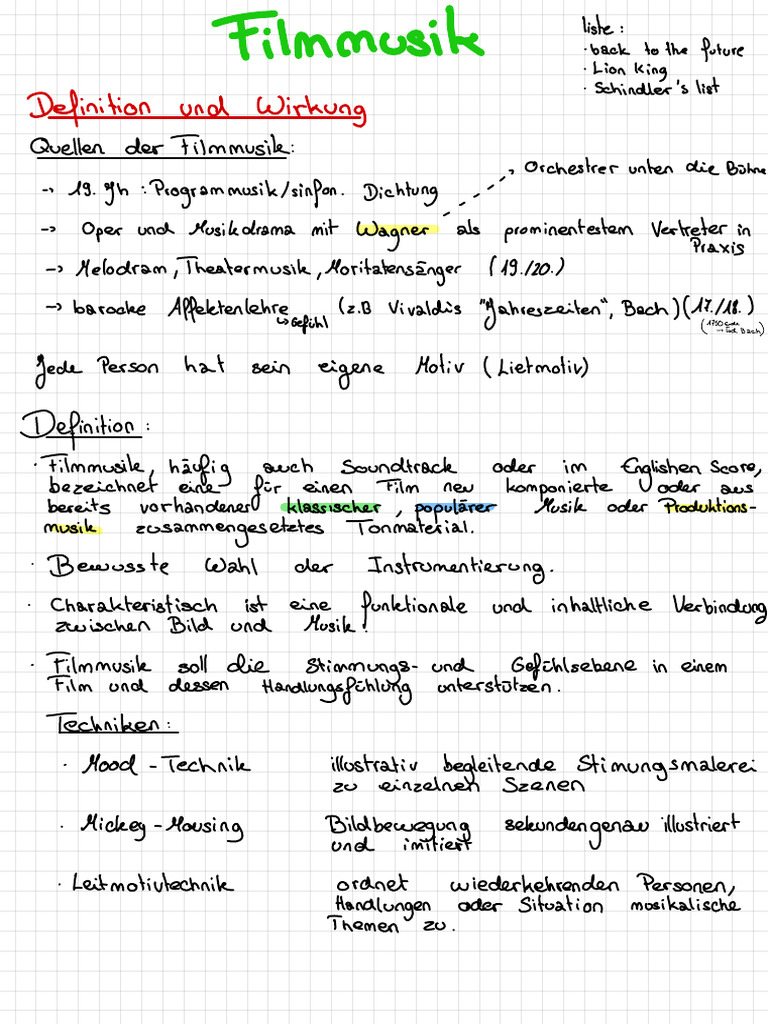 Filmmusik
liste:
· back to the future
· Lion King
· Schindler's list
Definition und Wirkung
Quellen der Filmmusik:
Orchestrer unten die Bühne
→ 19. Jh : Programmusik/sinfon. Dichtung
→ Oper und Musikdrama mit Wagner als prominentestem Vertreter in
Praxis
→ Melodram, Theatermusik, Moritatensänger (19./20.)
→ barocke Affektenlehre (z.B Vivaldis "Jahreszeiten", Bach) (17./18.)
↳ Gefühl
(1750 Ende
→ Tod Bach)
Jede Person hat sein eigene Motiv (Lietmotiv)
Definition:
· Filmmusik, häufig auch Soundtrack oder im Englishen Score,
bezeichnet eine für einen Film neu komponierte oder aus
bereits vorhandener klassischer, populärer Musik oder Produktions-
musik zusammengesetztes Tonmaterial.
· Bewusste Wahl der Instrumentierung.
· Charakteristisch ist eine funktionale und inhaltliche Verbindung
zwischen Bild und Musik!
· Filmmusik soll die Stimmungs- und Gefühlsebene in einem
Film und dessen Handlungsfühlung unterstützen.
Techniken:
· Mood-Technik illustrativ begleitende Stimungsmalerei
zu einzelnen Szenen
· Mickey-Mousing Bildbewegung sekundengenau illustriert
und imitiert
· Leitmotivtechnik ordnet wiederkehrenden Personen,
Handlungen oder Situation musikalische
Themen zu.